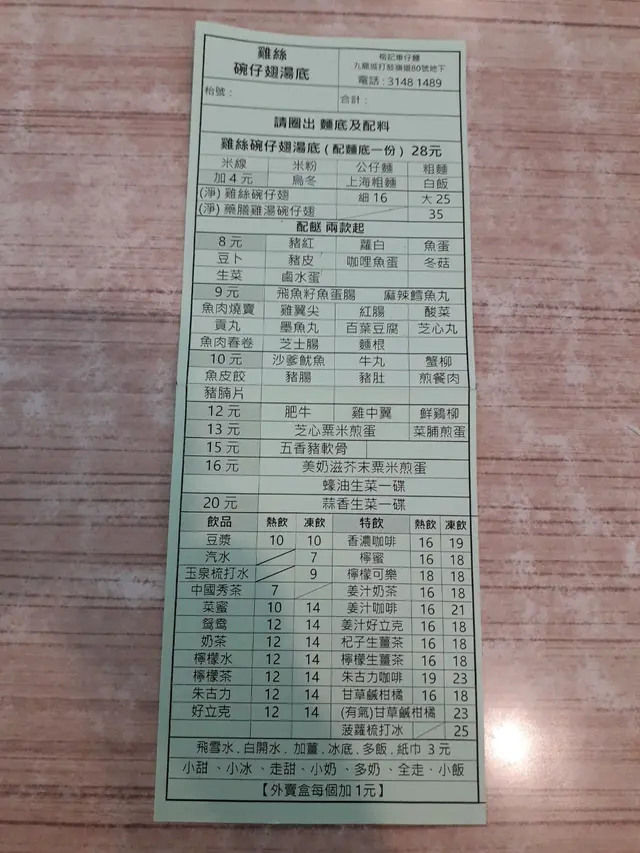 雞絲
碗仔翅湯底
格記車仔麵
九龍城打鼓嶺道80號地下
電話：3148 1489
枱號：
合計：
請圈出 麵底及配料
雞絲碗仔翅湯底 ( 配麵底一份 ) 28元
米線 米粉 公仔麵 粗麵
加 4 元 烏冬 上海粗麵 白飯
(淨) 雞絲碗仔翅 細 16 大 25
(淨) 藥膳雞湯碗仔翅 35
配餸 兩款起
8 元 豬紅 蘿白 魚蛋
豆卜 豬皮 咖哩魚蛋 冬菇
生菜 鹵水蛋
9 元 飛魚籽魚蛋腸 麻辣鱈魚丸
魚肉燒賣 雞翼尖 紅腸 酸菜
貢丸 墨魚丸 百葉豆腐 芝心丸
魚肉春卷 芝士腸 麵根
10 元 沙爹魷魚 牛丸 蟹柳
魚皮餃 豬腸 豬肚 煎餐肉
豬腩片
12 元 肥牛 雞中翼 鮮鷄柳
13 元 芝心粟米煎蛋 菜脯煎蛋
15 元 五香豬軟骨
16 元 美奶滋芥末粟米煎蛋
蠔油生菜一碟
20 元 蒜香生菜一碟
飲品 熱飲 凍飲 特飲 熱飲 凍飲
豆漿 10 10 香濃咖啡 16 19
汽水 7 檸蜜 16 18
玉泉梳打水 9 檸檬可樂 18 18
中國秀茶 7 姜汁奶茶 16 18
菜蜜 10 14 姜汁咖啡 16 21
鴛鴦 12 14 姜汁好立克 16 18
奶茶 12 14 杞子生薑茶 16 18
檸檬水 12 14 檸檬生薑茶 16 18
檸檬茶 12 14 朱古力咖啡 19 23
朱古力 12 14 甘草鹹柑橘 16 18
好立克 12 14 (有氣)甘草鹹柑橘 23
菠蘿梳打冰 25
飛雪水 . 白開水 . 加薑 . 冰底 . 多飯 . 紙巾 3 元
小甜 、小冰 、走甜、小奶 、多奶 、全走、小飯
【 外賣盒每個加 1元 】